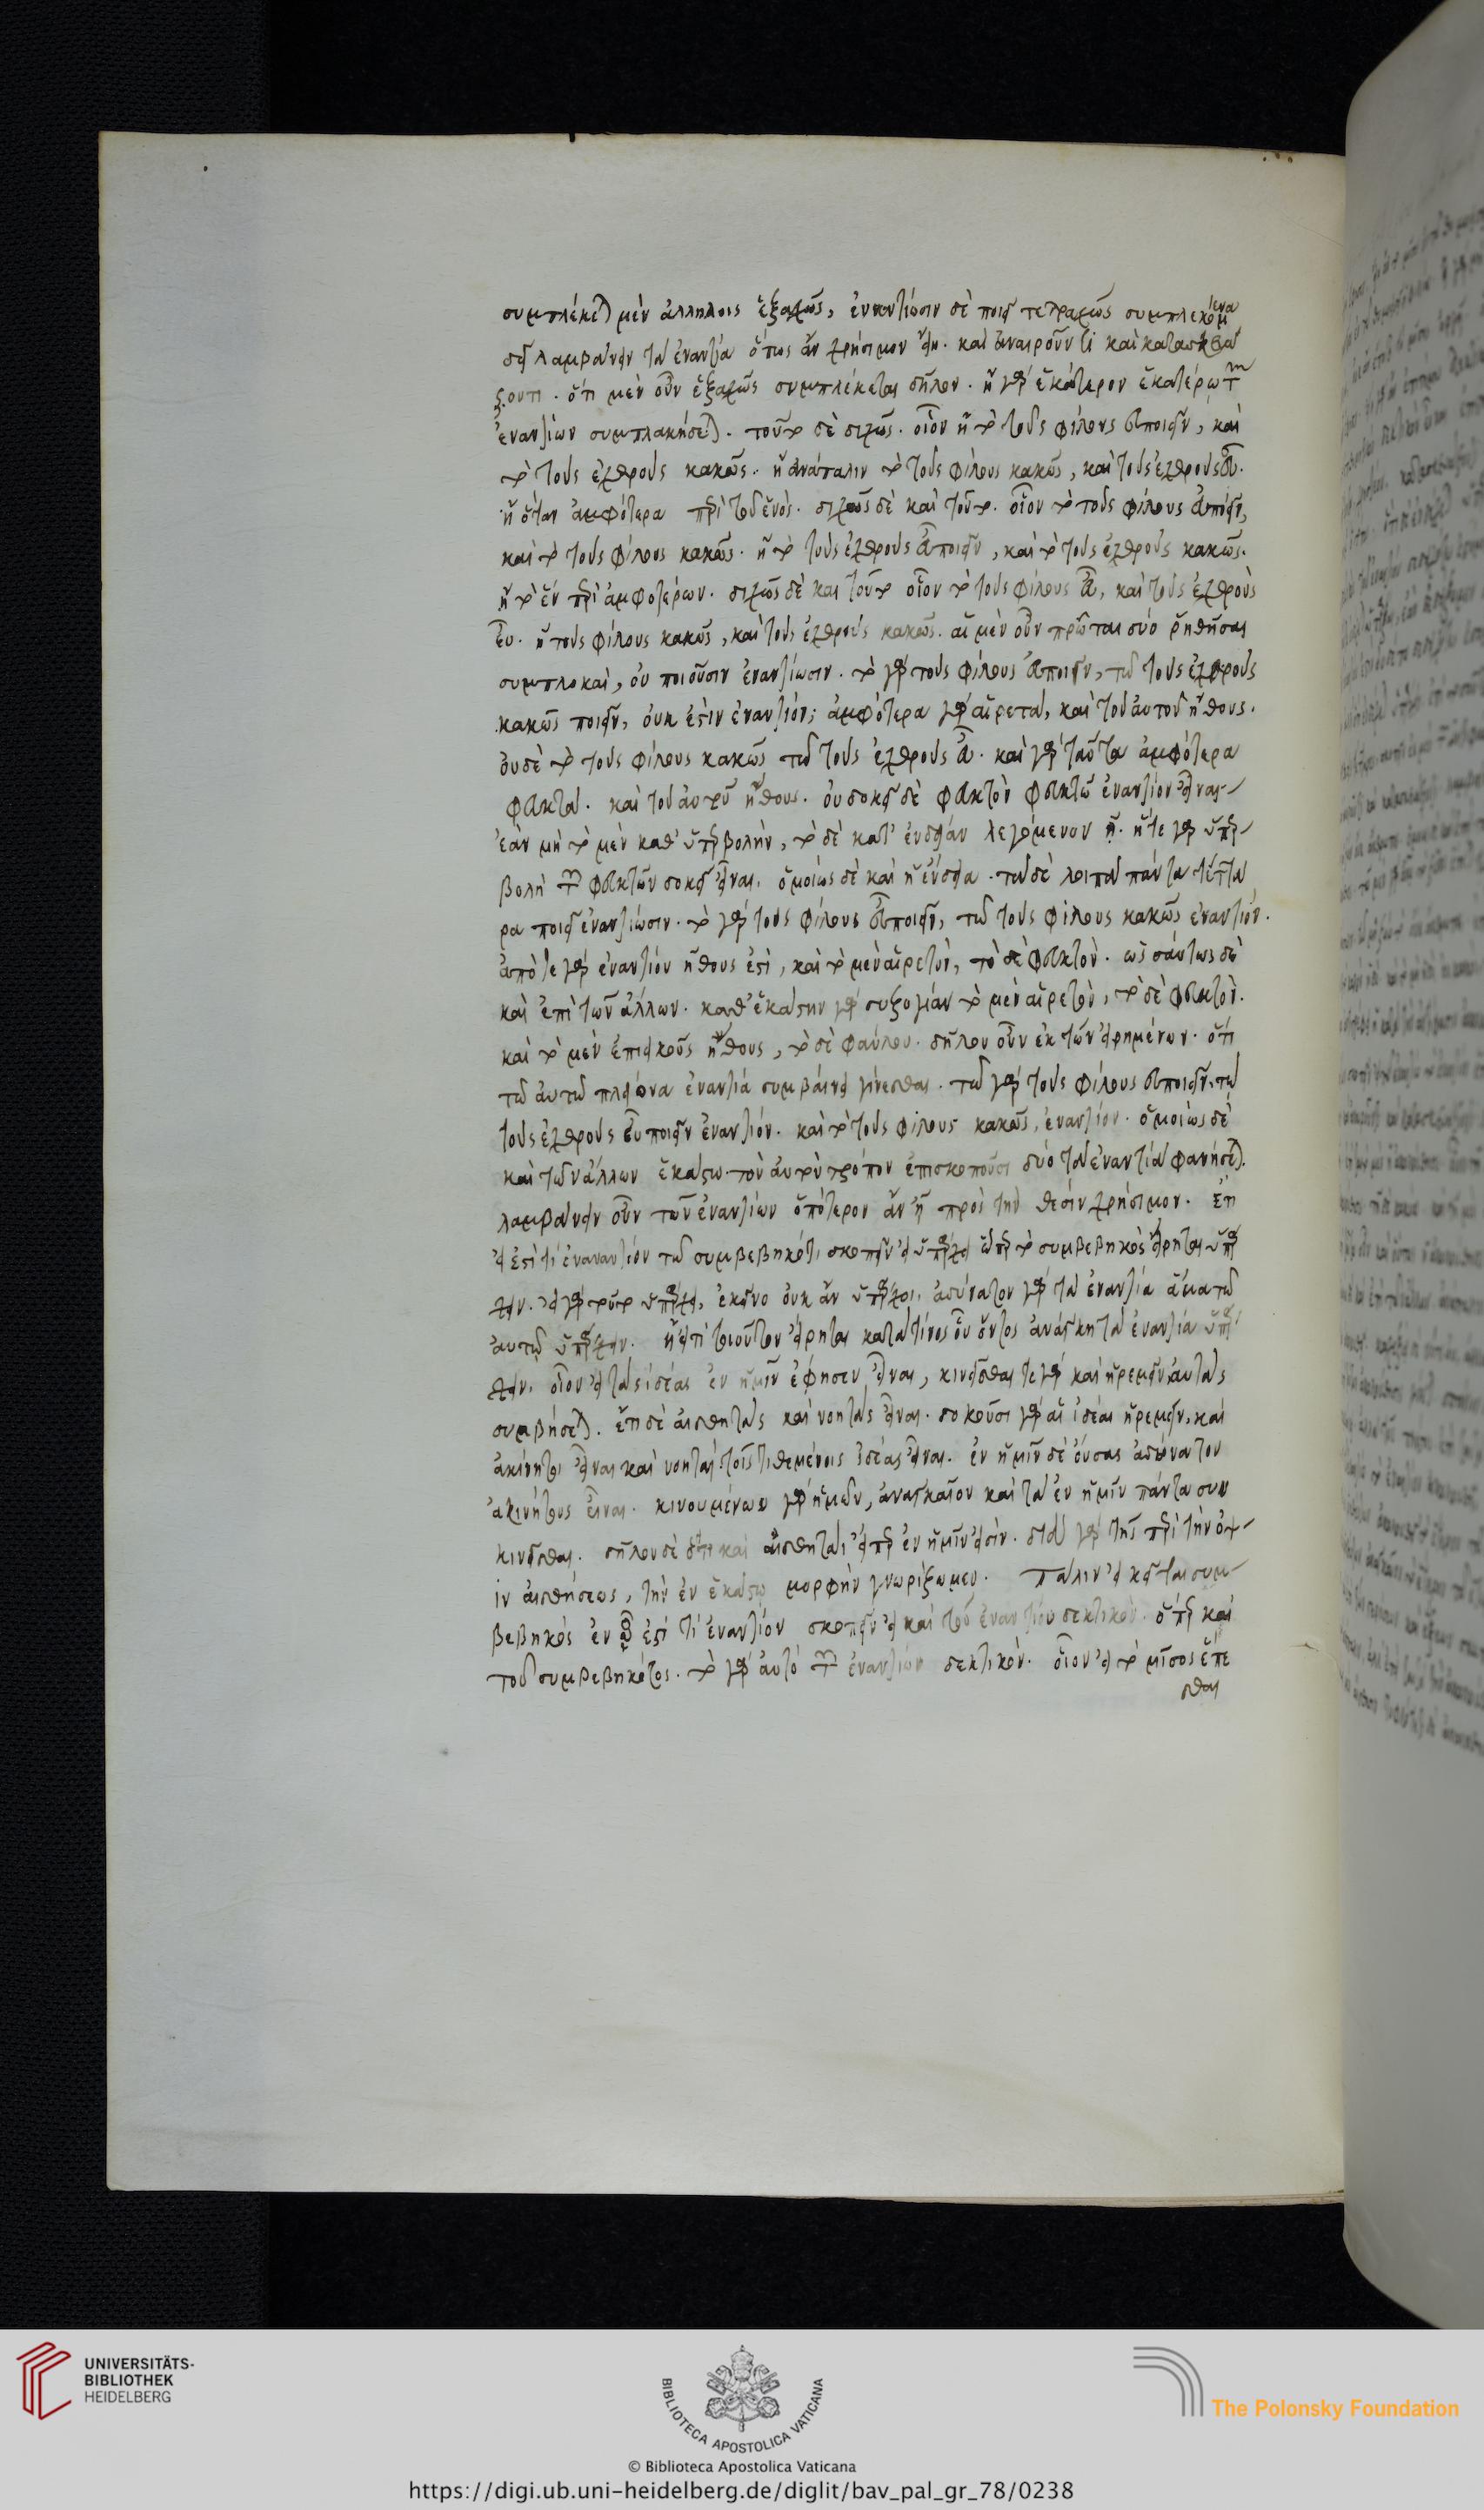 συμπλέκεται μὲν ἀλλήλοις ἑξαχῶς, ἐναντίωσιν δὲ ποιεῖ τετραχῶς συμπλεκόμενα
δεῖ λαμβάνειν τὰ ἐναντία ὅπως ἂν χρήσιμον ᾖ. καὶ ἀναιροῦντι καὶ κατασκευά
ζοντι. ὅτι μὲν οὖν ἑξαχῶς συμπλέκεται δῆλον. ἢ γὰρ ἑκάτερον ἑκατέρῳ τῶν
ἐναντίων συμπλακήσεται. τοῦτο δὲ διχῶς. οἷον ἢ τὸ τοὺς φίλους εὖ ποιεῖν, καὶ
τὸ τοὺς ἐχθροὺς κακῶς. ἢ ἀνάπαλιν τὸ τοὺς φίλους κακῶς, καὶ τοὺς ἐχθροὺς εὖ.
ἢ ὅταν ἀμφότερα περὶ τοῦ ἑνός. διχῶς δὲ καὶ τοῦτο. οἷον τὸ τοὺς φίλους εὖ ποιεῖν,
καὶ τὸ τοὺς φίλους κακῶς. ἢ τὸ τοὺς ἐχθροὺς εὖ ποιεῖν, καὶ τὸ τοὺς ἐχθροὺς κακῶς.
ἢ τὸ ἓν περὶ ἀμφοτέρων. διχῶς δὲ καὶ τοῦτο οἷον τὸ τοὺς φίλους εὖ, καὶ τοὺς ἐχθροὺς
εὖ. ἢ τοὺς φίλους κακῶς, καὶ τοὺς ἐχθροὺς κακῶς. αἱ μὲν οὖν πρῶται δύο ῥηθεῖσαι
συμπλοκαὶ, οὐ ποιοῦσιν ἐναντίωσιν. τὸ γὰρ τοὺς φίλους εὖ ποιεῖν, τῷ τοὺς ἐχθροὺς
κακῶς ποιεῖν, οὐκ ἔστιν ἐναντίον; ἀμφότερα γὰρ αἱρετὰ, καὶ τοῦ αὐτοῦ ἤθους.
οὐδὲ τὸ τοὺς φίλους κακῶς τῷ τοὺς ἐχθροὺς εὖ. καὶ γὰρ ταῦτα ἀμφότερα
φευκτά. καὶ τοῦ αὐτοῦ ἤθους. οὐ δοκεῖ δὲ φευκτὸν φευκτῷ ἐναντίον εἶναι
ἐὰν μὴ τὸ μὲν καθ' ὑπερβολὴν, τὸ δὲ κατ' ἔνδειαν λεγόμενον ᾖ. ἥ τε γὰρ ὑπερ
βολὴ τῶν φευκτῶν δοκεῖ εἶναι. ὁμοίως δὲ καὶ ἡ ἔνδεια. τὰ δὲ λοιπὰ πάντα τέττα
ρα ποιεῖ ἐναντίωσιν. τὸ γὰρ τοὺς φίλους εὖ ποιεῖν, τῷ τοὺς φίλους κακῶς ἐναντίον.
ἀπό τε γὰρ ἐναντίου ἤθους ἐστὶ, καὶ τὸ μὲν αἱρετὸν, τὸ δὲ φευκτόν. ὡσαύτως δὲ
καὶ ἐπὶ τῶν ἄλλων. καθ' ἑκάστην γὰρ συζυγίαν τὸ μὲν αἱρετὸν, τὸ δὲ φευκτόν.
καὶ τὸ μὲν ἐπιεικοῦς ἤθους, τὸ δὲ φαύλου. δῆλον οὖν ἐκ τῶν εἰρημένων. ὅτι
τῷ αὐτῷ πλείονα ἐναντία συμβαίνει γίνεσθαι. τῷ γὰρ τοὺς φίλους εὖ ποιεῖν, τὸ
τοὺς ἐχθροὺς εὖ ποιεῖν ἐναντίον. καὶ τὸ τοὺς φίλους κακῶς, ἐναντίον. ὁμοίως δὲ
καὶ τῶν ἄλλων ἑκάστῳ τὸν αὐτὸν τρόπον ἐπισκοποῦσι δύο τὰ ἐναντία φανήσεται.
λαμβάνειν οὖν τῶν ἐναντίων ὁπότερον ἂν ᾖ πρὸς τὴν θέσιν χρήσιμον. ἔτι
εἰ ἔστι τι ἐναντίον τῷ συμβεβηκότι σκοπεῖν εἰ ὑπάρχει ᾧπερ τὸ συμβεβηκὸς εἴρηται ὑπάρ
χειν. εἰ γὰρ τοῦτο ὑπάρχει, ἐκεῖνο οὐκ ἂν ὑπάρχοι. ἀδύνατον γὰρ τὰ ἐναντία ἅμα τῷ
αὐτῷ ὑπάρχειν. ἢ εἴ τι τοιοῦτον εἴρηται κατά τινος οὗ ὄντος ἀνάγκη τὰ ἐναντία ὑπάρ
χειν. οἷον εἰ τὰς ἰδέας ἐν ἡμῖν ἔφησεν εἶναι, κινεῖσθαί τε γὰρ καὶ ἠρεμεῖν αὐτὰς
συμβήσεται. ἔτι δὲ αἰσθητὰς καὶ νοητὰς εἶναι. δοκοῦσι γὰρ αἱ ἰδέαι ἠρεμεῖν, καὶ
ἀκίνητοι εἶναι καὶ νοηταὶ τοῖς τιθεμένοις ἰδέας εἶναι. ἐν ἡμῖν δὲ οὔσας ἀδύνατον
ἀκινήτους εἶναι. κινουμένων γὰρ ἡμῶν, ἀναγκαῖον καὶ τὰ ἐν ἡμῖν πάντα συγ
κινεῖσθαι. δῆλον δὲ ὅτι καὶ αἰσθηταὶ εἴπερ ἐν ἡμῖν εἰσίν. διὰ γὰρ τῆς περὶ τὴν ὄψ
ιν αἰσθήσεως, τὴν ἐν ἑκάστῳ μορφὴν γνωρίζομεν. πάλιν εἰ κεῖται συμ
βεβηκὸς ἐν ᾧ ἐστί τι ἐναντίον σκοπεῖν εἰ καὶ τοῦ ἐναντίου δεκτικὸν. ὅπερ καὶ
τοῦ συμβεβηκότος. τὸ γὰρ αὐτὸ τῶν ἐναντίων δεκτικόν. οἷον εἰ τὸ μῖσος ἕπε
σθαι
UNIVERSITÄTS-
BIBLIOTHEK
HEIDELBERG
BIBLIOTECA APOSTOLICA VATICANA
The Polonsky Foundation
© Biblioteca Apostolica Vaticana
https://digi.ub.uni-heidelberg.de/diglit/bav_pal_gr_78/0238